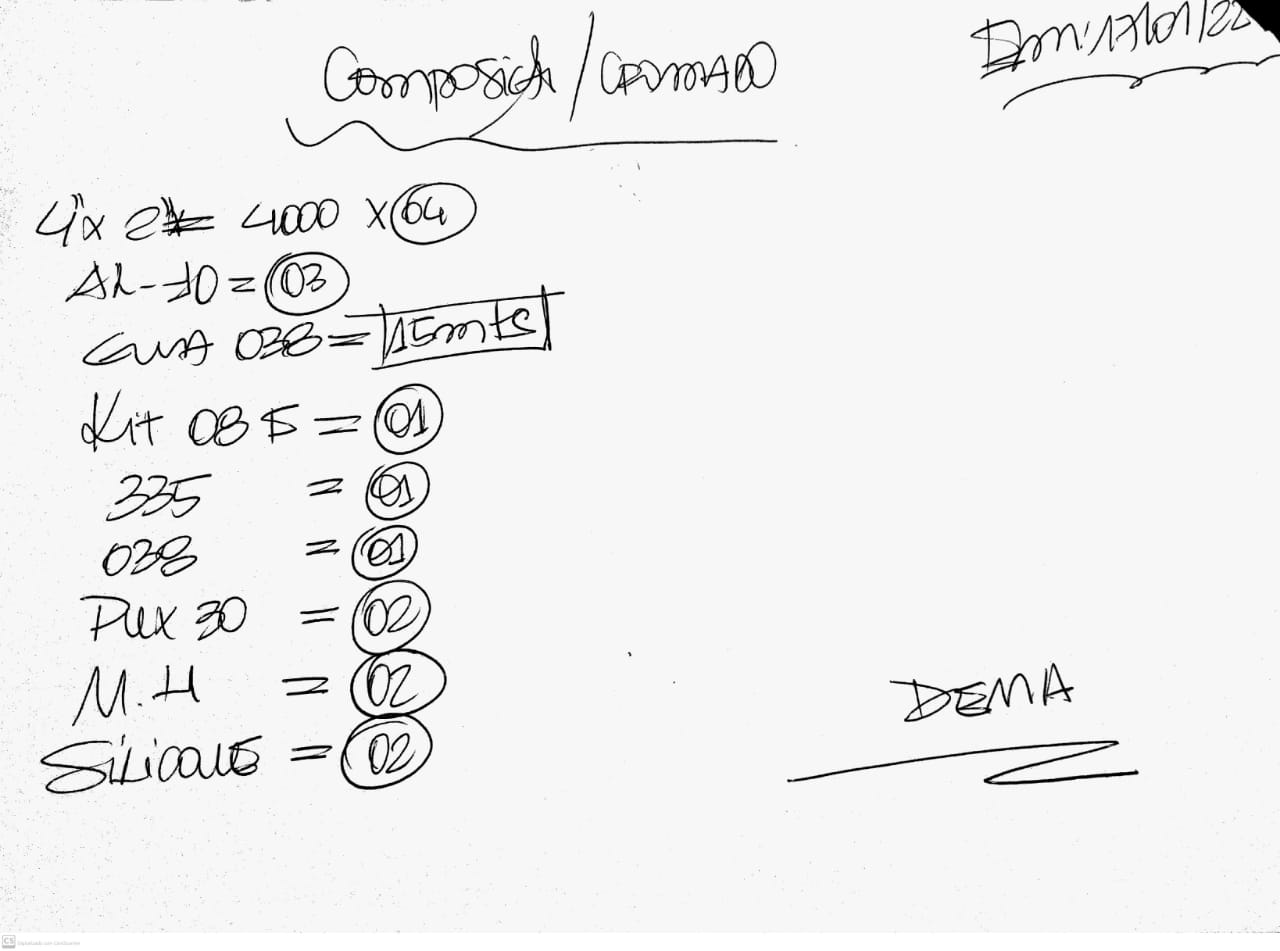 Composição / CROMADO
Em: 17/01/22
4"x 2" = 4000 x 64
AL-10 = 03
GUIA 038 = 15mts
Kit 085 = 01
335 = 01
038 = 01
PUX 30 = 02
M.H = 02
SILICONE = 02
DEMA
CS Digitalizado com CamScanner